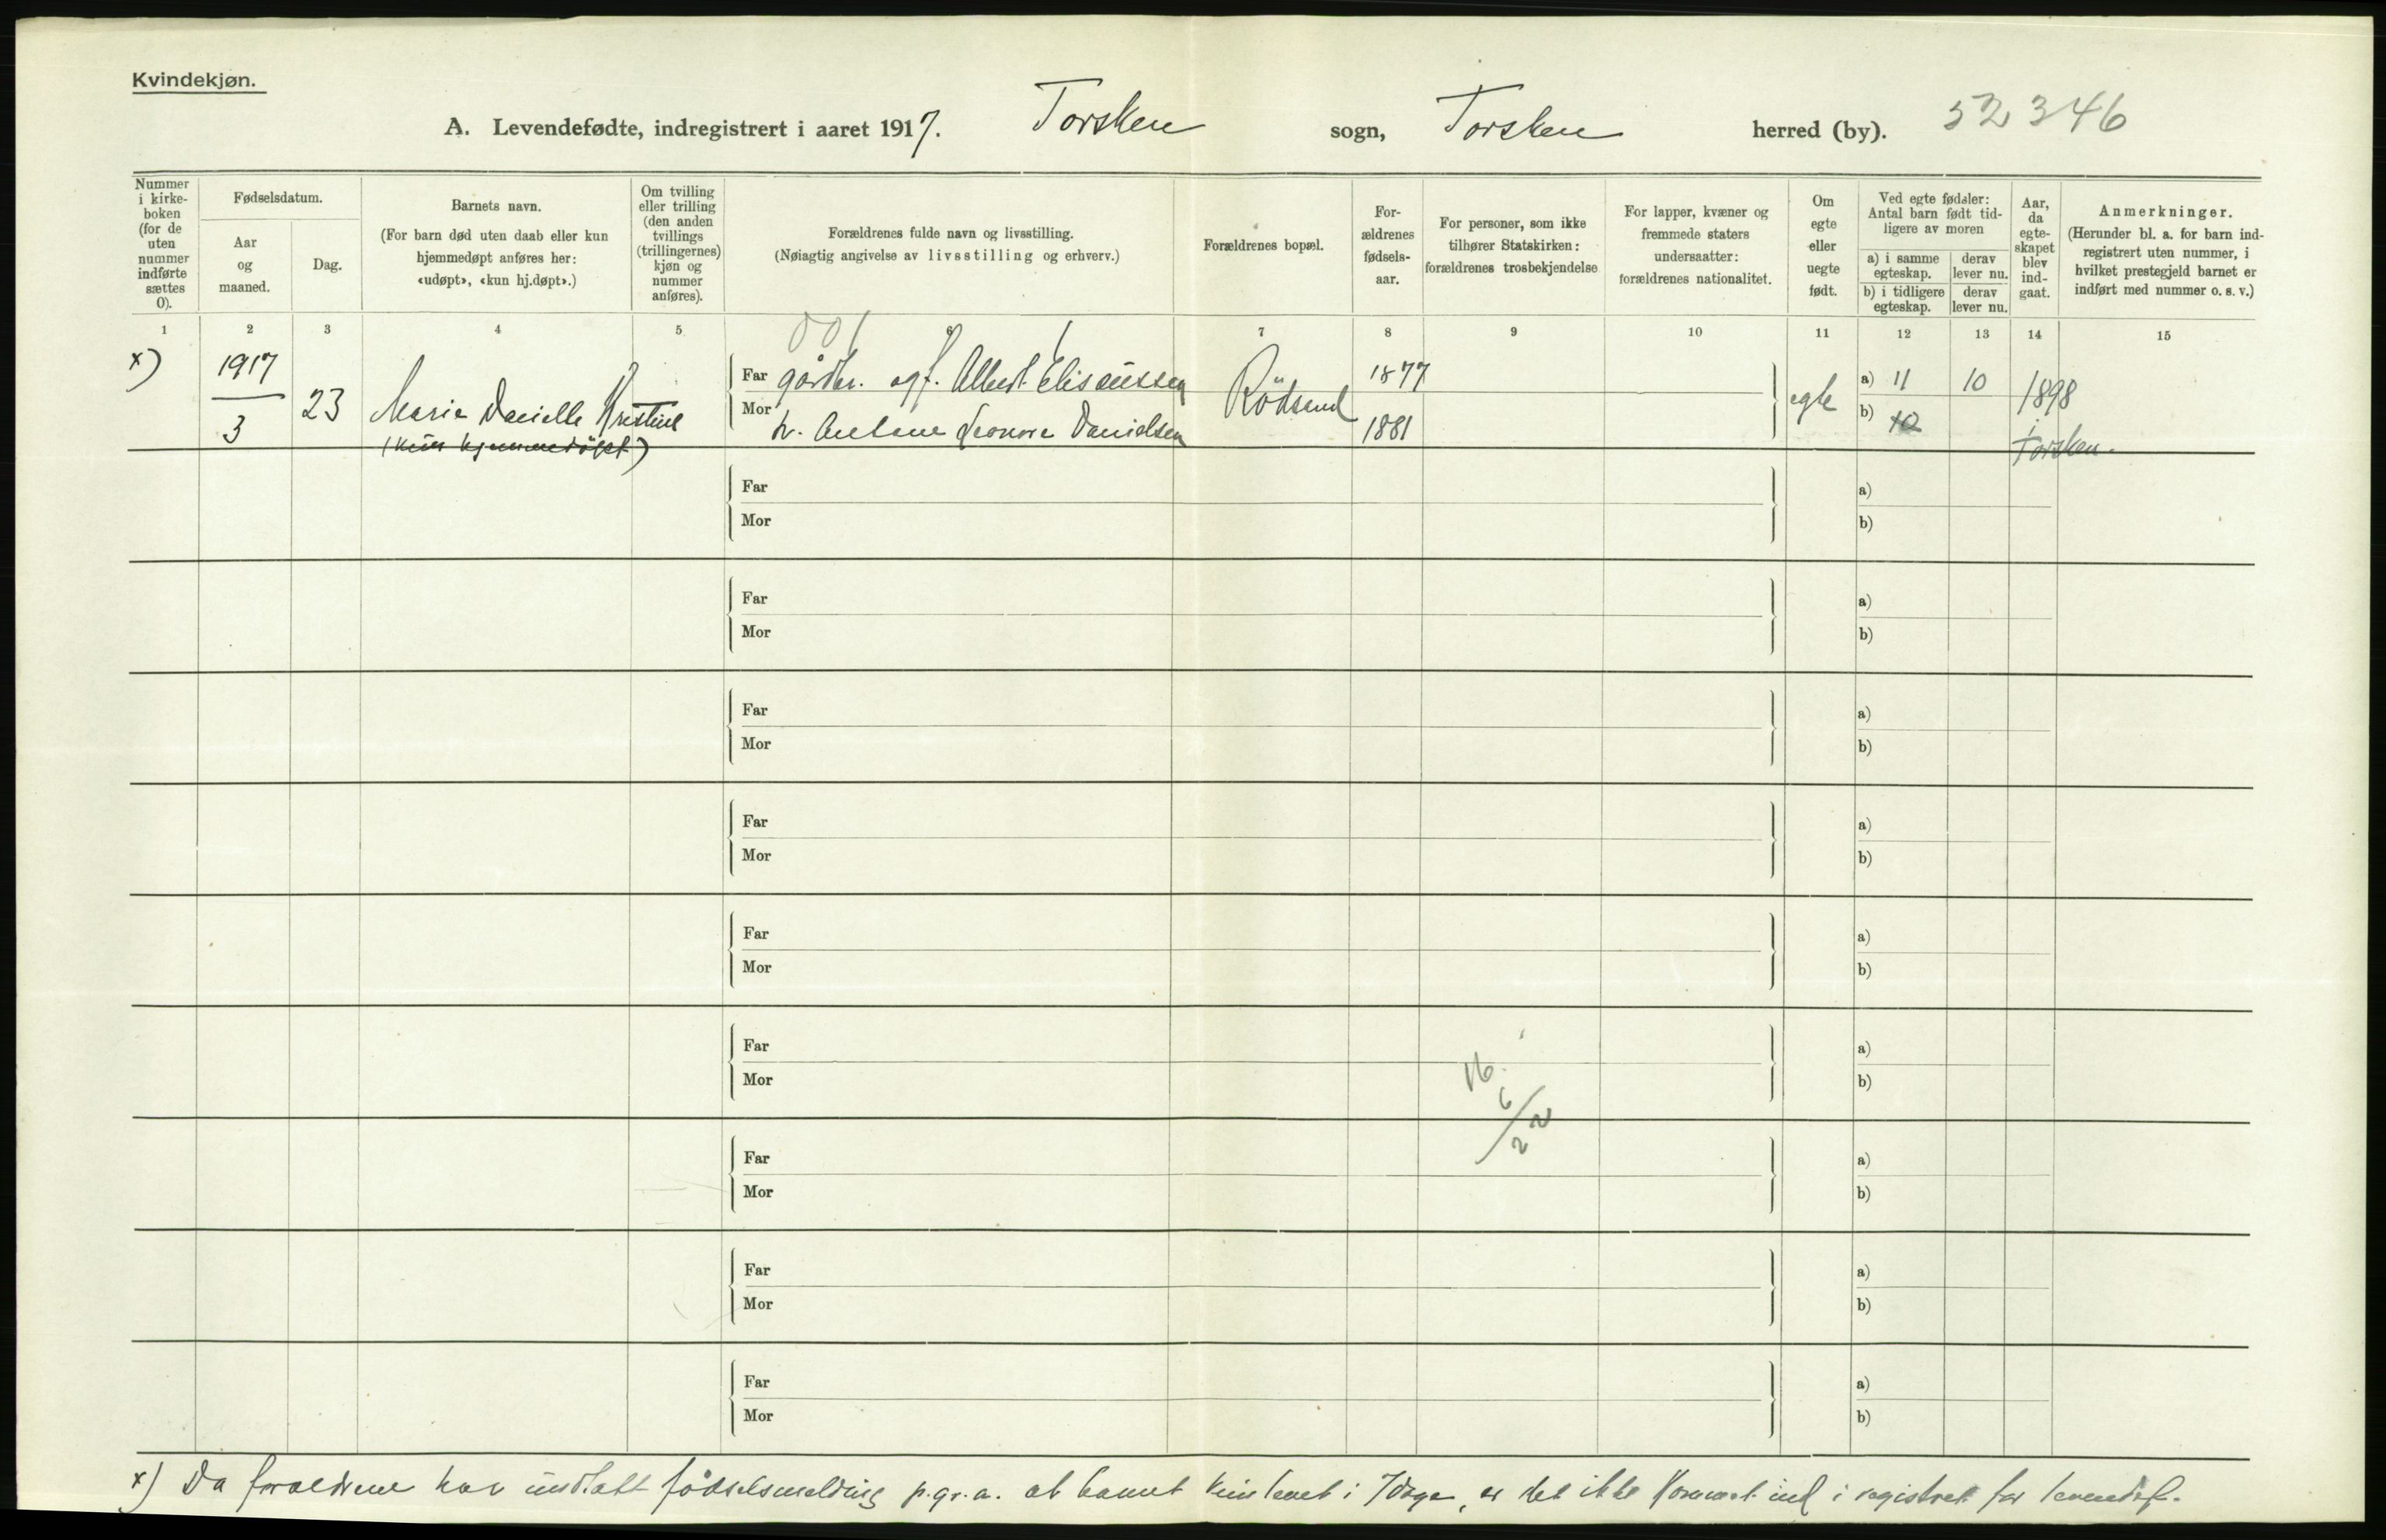 Kvindekjøn.
A. Levendefødte, indregistrert i aaret 1917. Torsken sogn, Torsken herred (by). 52 346
Nummer i kirke- boken (for de uten nummer indførte sættes 0).
Fødselsdatum.
Aar og maaned.
Dag.
Barnets navn.
(For barn død uten daab eller kun hjemmedøpt anføres her: «udøpt», «kun hj.døpt».)
Om tvilling eller trilling (den anden tvillings (trillingernes) kjøn og nummer anføres).
Forældrenes fulde navn og livsstilling.
(Nøiagtig angivelse av livsstilling og erhverv.)
Forældrenes bopæl.
For- ældrenes fødsels- aar.
For personer, som ikke tilhører Statskirken: forældrenes trosbekjendelse
For lapper, kvæner og fremmede staters undersaatter: forældrenes nationalitet.
Om egte eller uegte født.
Ved egte fødsler: Antal barn født tid- ligere av moren
a) i samme egteskap.
derav lever nu.
b) i tidligere egteskap.
derav lever nu.
Aar, da egte- skapet blev ind- gaat.
Anmerkninger.
(Herunder bl. a. for barn ind- registrert uten nummer, i hvilket prestegjeld barnet er indført med nummer o. s. v.)
1 2 3 4 5 6 7 8 9 10 11 12 13 14 15
001
x) 1917 Far gårdbr. og f. Albert Elisæussen 1877 a) 11 10 1898
3 23 Marie Danielle Kristine Mor h. Antane Leonore Danielsen Rödsand 1881 egte b) 10
(kun hjemmedöpt) Torsken.
Far a)
Mor b)
Far a)
Mor b)
Far a)
Mor b)
Far a)
Mor b)
Far a)
Mor b)
Far a)
Mor b)
Far a)
Mor b)
Far a)
Mor b)
Far a)
Mor b)
16.
6/22
x) Da forældrene har undlatt födselsmelding p.gr.a. at barnet kun levet i 7 dage, er det ikke kommet ind i registret for levendef.